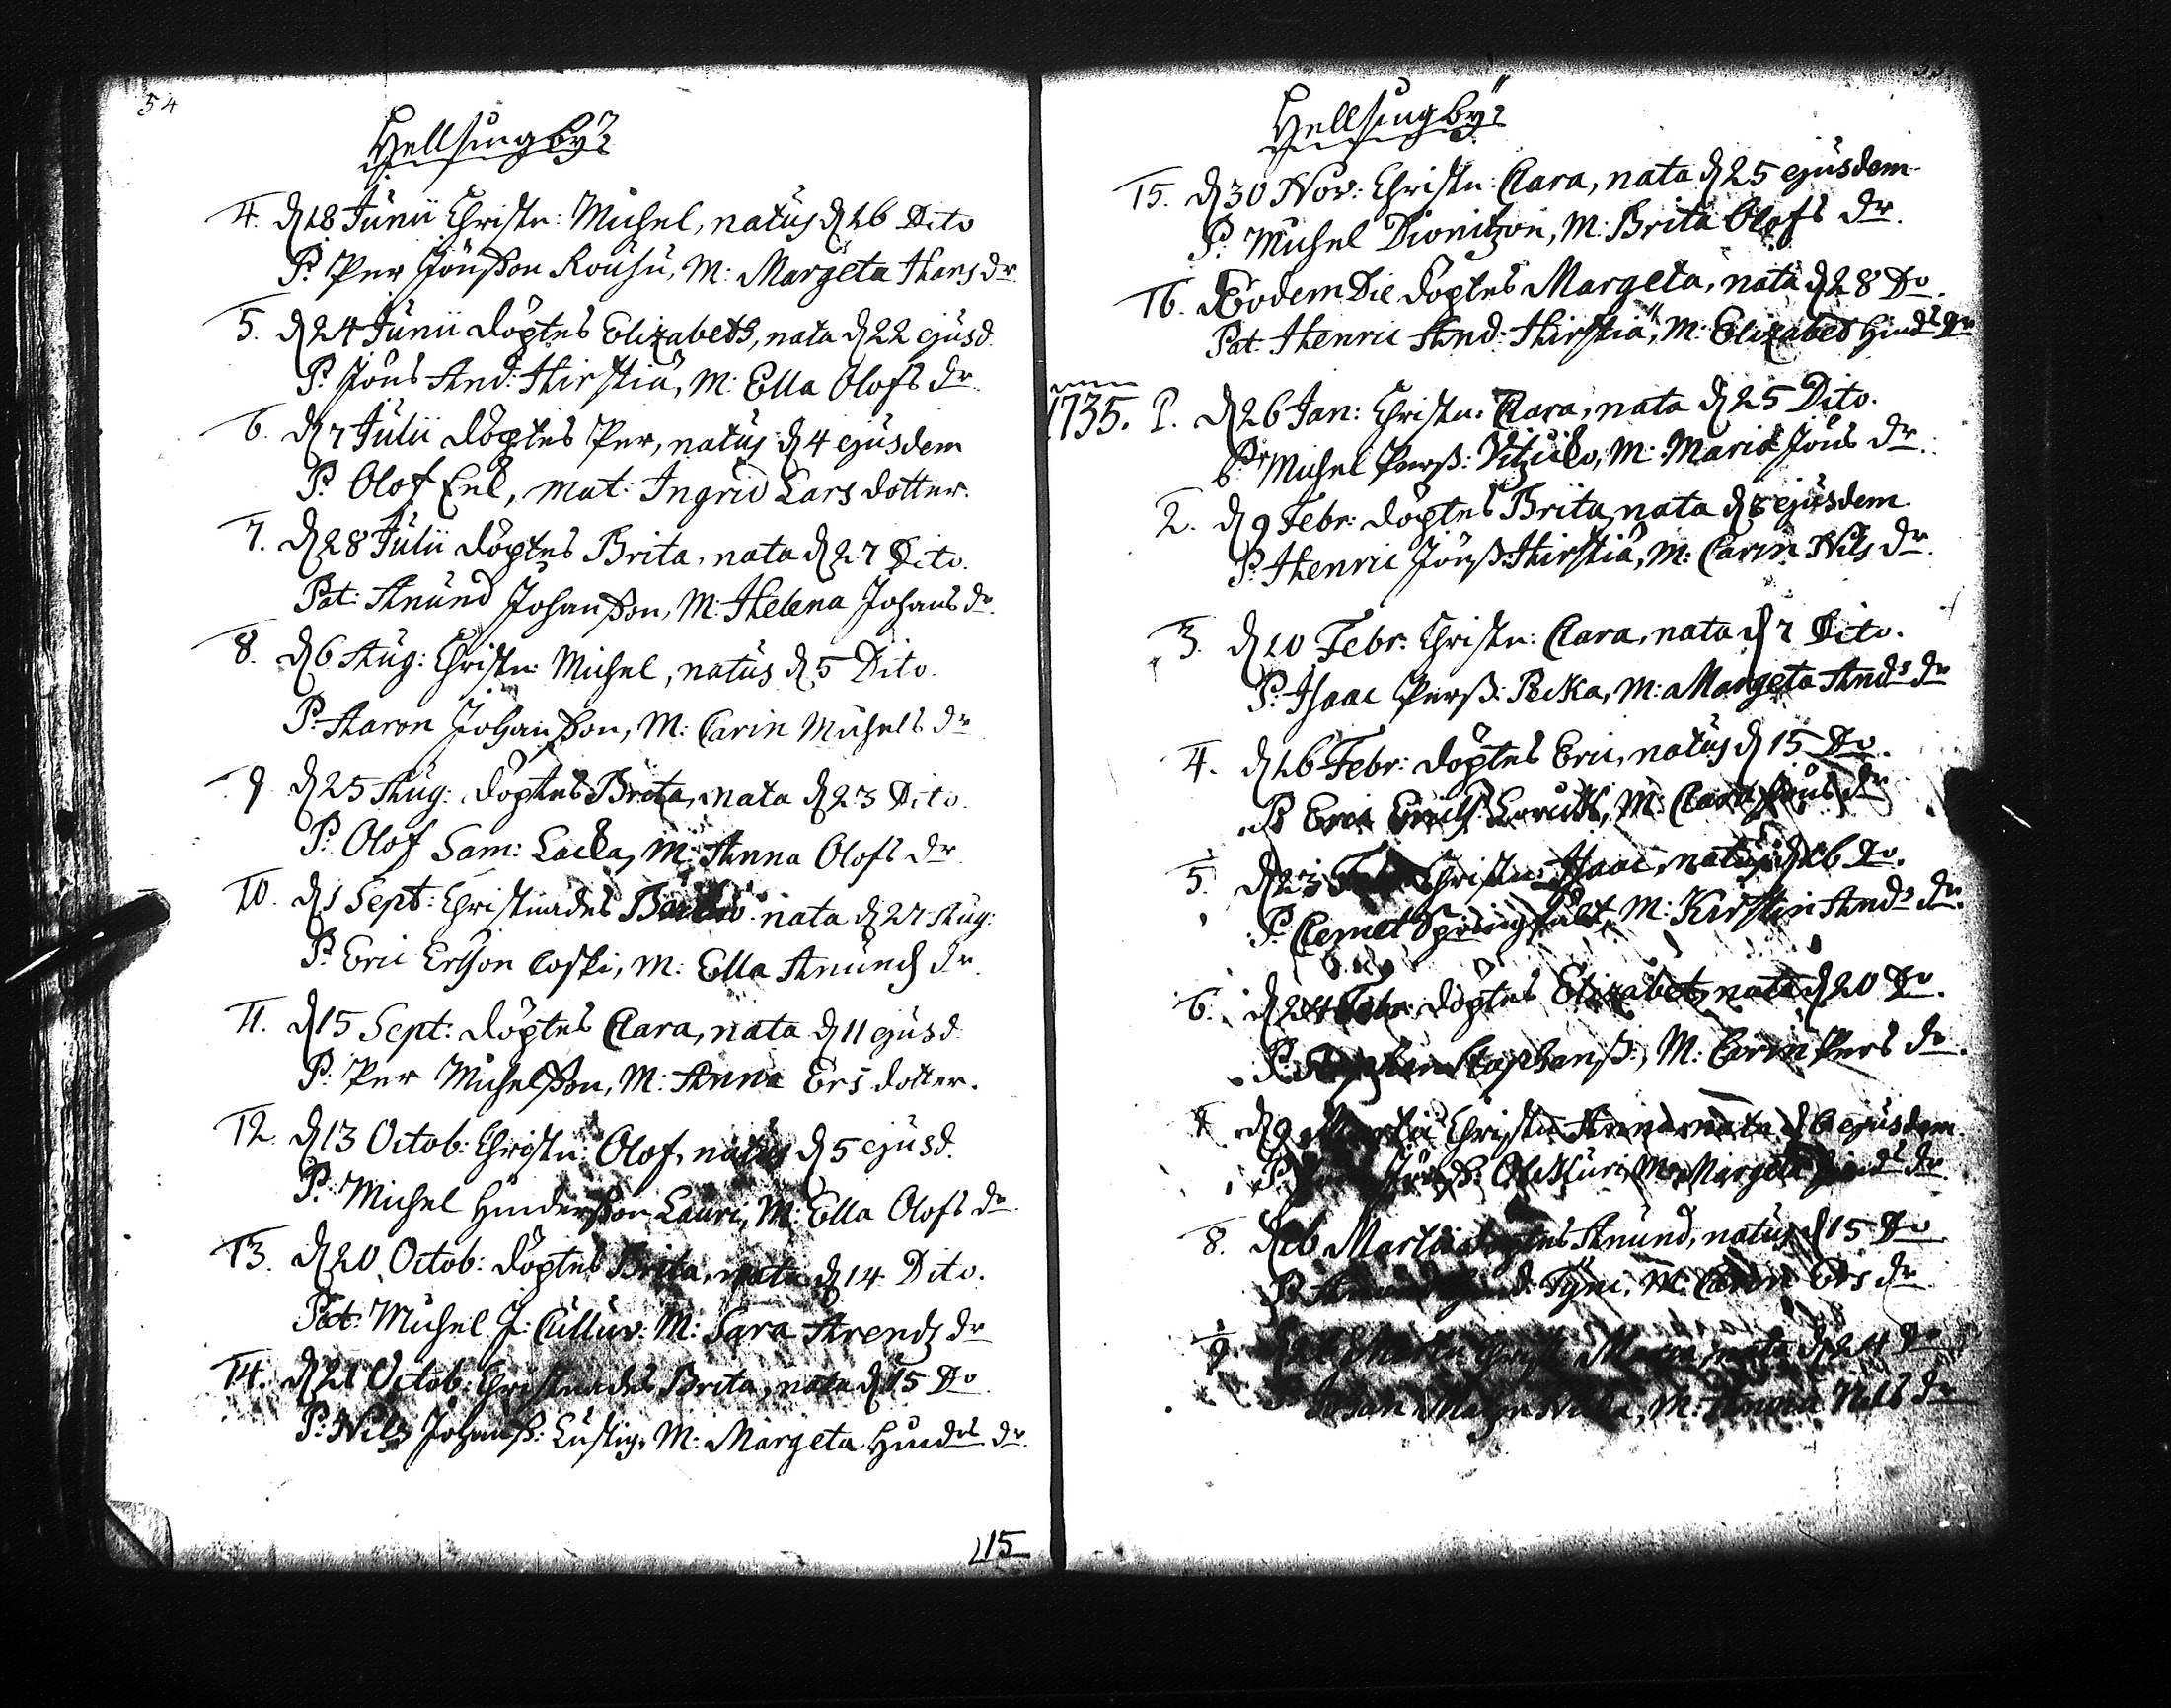 54
Hellsingby
4. d 18 Junii Christn: Michel, natus d 16 Dito
P. Per Jönsson Rousu, M: Margeta Hans dr
5. d 24 Junii döptes Elizabeth, nata d 22 ejusd.
P. Jöns And: Hirstiä, M: Ella Olofs dr
6. d 7 Julii döptes Per, natus d 4 ejusdem
P. Olof Enl, mat: Ingrid Lars dotter.
7. d 28 Julii döptes Brita, nata d 27 Dito.
Pat: Anund Johansson, M: Helena Johans dr.
8. d 6 Aug: Christn: Michel, natus d 5 Dito.
P. Aaron Johansson, M: Carin Michels dr
9 d 25 Aug: döptes Brita, nata d 23 Dito.
P. Olof Sam: Lacka, M: Anna Olofs dr
10. d 1 Sept: Christnades nata d 27 Aug:
P. Eric Erson Coski, M: Ella Anunds dr.
11. d 15 Sept: döptes Clara, nata d 11 ejusd.
P. Per Michelsson, M: Anna Ers dotter.
12. d 13 Octob: Christn: Olof, natus d 5 ejusd.
P. Michel Hindersson Lauri, M: Ella Olofs dr
13. d 20 Octob: döptes Brita, nata d 14 Dito.
Pat: Michel J: Culluv: M: Sara Arendz dr
14. d 21 Octob: Christnades Brita, nata d 15 Do
P. Nils Johanss: Lustig, M: Margeta Hinds dr.
15
Hellsingby
15. d 30 Nov: Christn: Clara, nata d 25 ejusdem
P. Michel Dionitzon, M: Brita Olofs dr.
16. Eodem Die döptes Margeta, nata d 28 Do.
Pat. Henric And: Hirstiä, M: Elizabet Hinds dr
1735. 1. d 26 Jan: Christn: Clara, nata d 25 Dito.
Michel Perss: M: Maria Jöns dr.
2. d 9 Febr: döptes Brita, nata d 8 ejusdem
P. Henric Jönss: Hirstiä, M: Carin Nils dr.
3. d 10 Febr: Christn: Clara, nata d 7 Dito.
P. Isaac Perss: Pecka, M: Margeta Ands dr
4. d 16 Febr: döptes Eric, natus d 15 Do.
P. Eric M: Clara Jöns dr
5. d 23 Christn: Isaac, natus d 16 Do.
P. Clemet Springfält, M: Kirstin Ands dr.
6. d 24 Febr: döptes Elizabet, nata d 20 Do.
P. Staphanss:, M: Carin Pers dr.
7 d 9 Martii Christn: nata d 6 ejusdem
P. M: Margeta Hinds dr
8. d 16 Martii döptes Anund, natus d 15 Do
P. Tyni, M: Carin Ers dr
9 Martii nata d 24 Do
Johan M: Nils dr